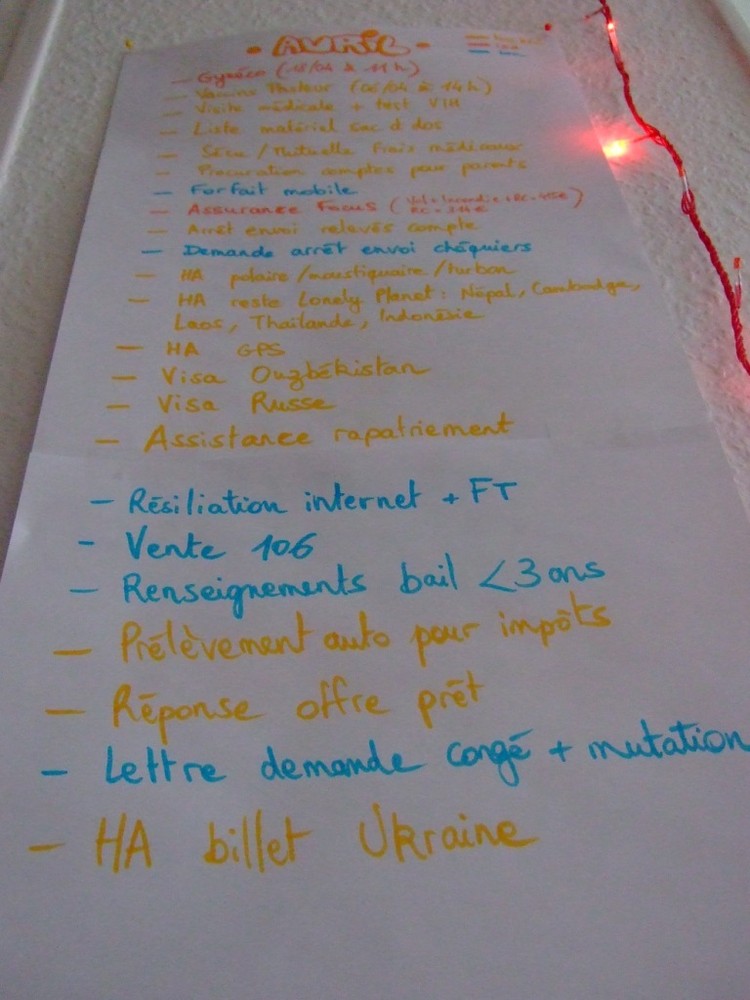 • AVRIL •
- Gynéco (18/04 à 11h)
- Vaccins Pasteur (06/04 à 14h)
- Visite médicale + test VIH
- Liste matériel sac à dos
- Sécu / Mutuelle Frais médicaux
- Procuration comptes pour parents
- Forfait mobile
- Assurance Focus (Vol + Incendie + RC =
RC =
- Arrêt envoi relevés compte
- Demande arrêt envoi chéquiers
- HA polaire / moustiquaire / turban
- HA reste Lonely Planet : Népal, Cambodge,
Laos, Thaïlande, Indonésie
- HA GPS
- Visa Ouzbékistan
- Visa Russe
- Assistance rapatriement
- Résiliation internet + FT
- Vente 106
- Renseignements bail < 3 ans
- Prélèvement auto pour impôts
- Réponse offre prêt
- Lettre demande congé + mutation
- HA billet Ukraine